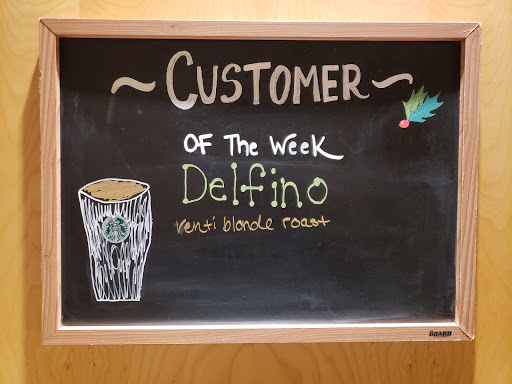 ~ CUSTOMER ~
OF The Week
Delfino
venti blonde roast